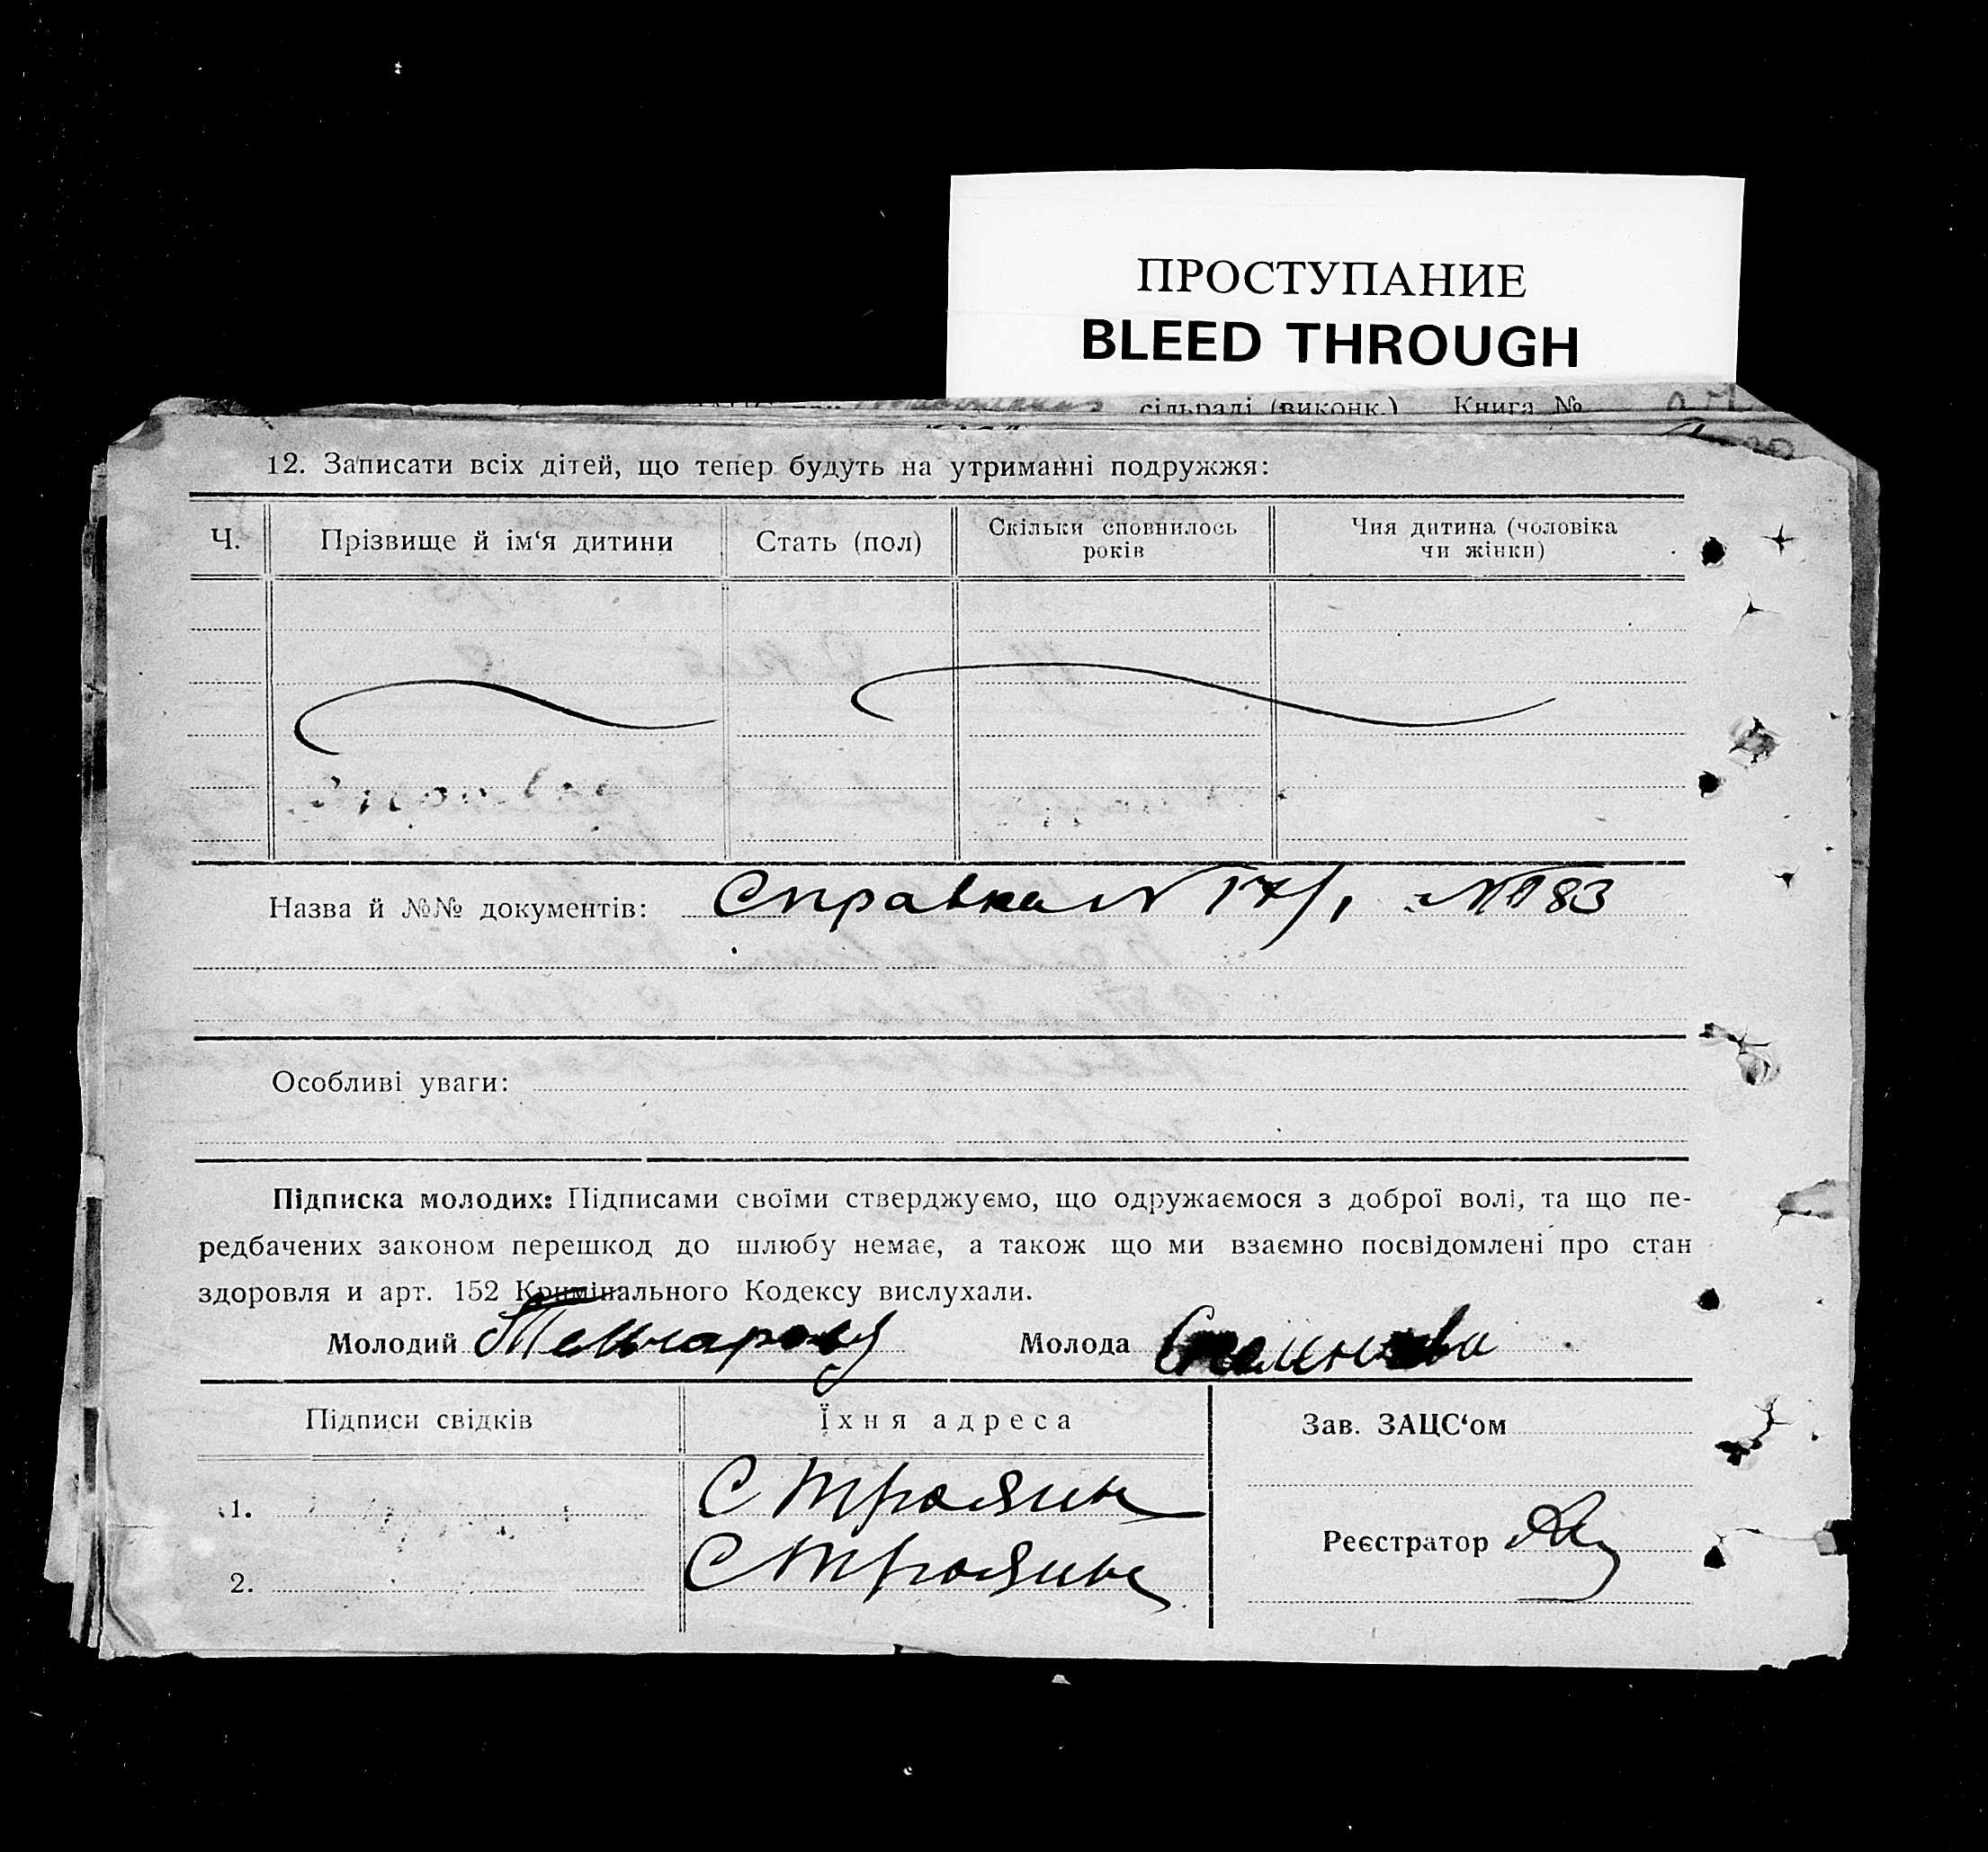 ПРОСТУПАНИЕ
BLEED THROUGH
сільраді (виконк.) Книга №
12. Записати всіх дітей, що тепер будуть на утриманні подружжя:
Ч. Прізвище й ім‘я дитини Стать (пол) Скільки сповнилось років Чия дитина (чоловіка чи жінки)
Назва й №№ документів: Справка N 17/1 N 183
Особливі уваги:
Підписка молодих: Підписами своїми стверджуємо, що одружаємося з доброї волі, та що пе-
редбачених законом перешкод до шлюбу немає, а також що ми взаємно посвідомлені про стан
здоровля и арт. 152 Кримінального Кодексу вислухали.
Молодий Молода
Підписи свідків Їхня адреса Зав. ЗАЦС‘ом
1. С Трояни
Реєстратор
2. С Трояни